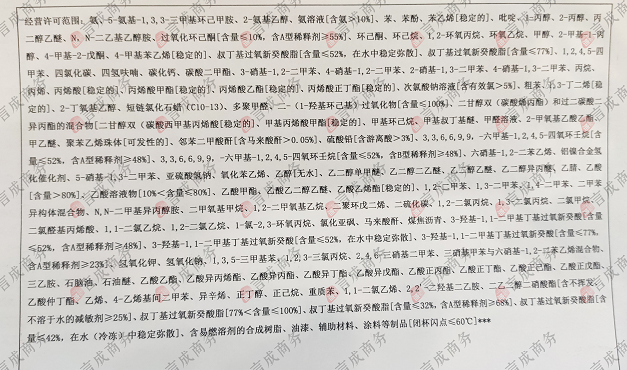 经营许可范围：氨、5-氨基-1,3,3-三甲基环己甲胺、2-氨基乙醇、氨溶液[含氨>10%]、苯、苯酚、苯乙烯[稳定的]、吡啶、1-丙醇、2-丙醇、丙
二醇乙醚、N,N-二乙基乙醇胺、过氧化环己酮[含量≤10%，含A型稀释剂≥55%]、环己酮、环己烷、1,2-环氧丙烷、环氧乙烷、甲醇、2-甲基-1-丙
醇、4-甲基-2-戊酮、4-甲基苯乙烯[稳定的]、叔丁基过氧新癸酸酯[含量≤52%，在水中稳定弥散]、叔丁基过氧新癸酸酯[含量≤77%]、1,2,4,5-四
甲苯、四氯化碳、四氢呋喃、碳化钙、碳酸二甲酯、3-硝基-1,2-二甲苯、4-硝基-1,2-二甲苯、2-硝基-1,3-二甲苯、4-硝基-1,3-二甲苯、丙烷、
丙烯、丙烯酸[稳定的]、丙烯酸甲酯[稳定的]、丙烯酸乙酯[稳定的]、丙烯酸正丁酯[稳定的]、次氯酸钠溶液[含有效氯>5%]、粗苯、1,3-丁二烯[稳
定的]、2-丁氧基乙醇、短链氯化石蜡(C10-13)、多聚甲醛、二-(1-羟基环己基)过氧化物[含量≤100%]、二甘醇双(碳酸烯丙酯)和过二碳酸二
异丙酯的混合物[二甘醇双(碳酸
甲基丙烯酸[稳定的]、甲基丙烯酸甲酯[稳定的]、甲基环己烷、甲基叔丁基醚、甲醛溶液、2-甲氧基乙酸乙酯、
甲乙醚、聚苯乙烯珠体[可发性的]、邻苯二甲酸酐[含马来酸酐>0.05%]、硫酸铅[含游离酸>3%]、3,3,6,6,9,9-六甲基-1,2,4,5-四氧环壬烷[含
量≤52%，含A型稀释剂≥48%]、3,3,6,6,9,9,-六甲基-1,2,4,5-四氧环壬烷[含量≤52%，含B型稀释剂≥48%]、六硝基-1,2-二苯乙烯、铝镍合金氢
化催化剂、5-硝基-1,3-二甲苯、亚硫酸氢钠、氧化苯乙烯、乙醇[无水]、乙二醇单甲醚、乙二醇二乙醚、乙二醇乙醚、乙二醇异丙醚、乙腈、乙酸
[含量>80%]、乙酸溶液物[10%<含量≤80%]、乙酸甲酯、乙酸乙二醇乙醚、乙酸乙烯酯[稳定的]、1,2-二甲苯、1,3-二甲苯、1,4-二甲苯、二甲苯
异构体混合物、N,N-二甲基异丙醇胺、二甲氧基甲烷、1,2-二甲氧基乙烷、二聚环戊二烯、二硫化碳、1,2-二氯丙烷、1,3-二氯丙烷、二氯甲烷、
二氯醛基丙烯酸、1,1-二氯乙烷、1,2-二氯乙烷、1-氯-2,3-环氧丙烷、氯化亚砜、马来酸酐、煤焦沥青、3-羟基-1,1-二甲基丁基过氧新癸酸[含量
≤52%，含A型稀释剂≥48%]、3-羟基-1,1-二甲基丁基过氧新癸酸[含量≤52%，在水中稳定弥散]、3-羟基-1,1-二甲基丁基过氧新癸酸[含量≤77%，
含A型稀释剂≥23%]、氢氧化钾、氢氧化钠、1,3,5-三甲基苯、1,2,3-三氯丙烷、2,4,6-三硝基二甲苯、三硝基甲苯与六硝基-1,2-二苯乙烯混合物、
三乙胺、石脑油、石油醚、乙酸乙酯、乙酸异丙烯酯、乙酸异丙酯、乙酸异丁酯、乙酸异戊酯、乙酸正丙酯、乙酸正丁酯、乙酸正己酯、乙酸正戊酯、
乙酸仲丁酯、乙烯、4-乙烯基间二甲苯、异辛烯、正丁醇、正己烷、重质苯、1,1-二氯乙烯、2,2'-二羟基二乙胺、乙二醇二硝酸酯[含不挥发、
不溶于水的减敏剂≥25%]、叔丁基过氧新癸酸酯[77%<含量≤100%]、叔丁基过氧新癸酸酯[含量≤32%，含A型稀释剂≥68%]、叔丁基过氧新癸酸酯[含
量≤42%，在水（冷冻）中稳定弥散]、含易燃溶剂的合成树脂、油漆、辅助材料、涂料等制品[闭杯闪点≤60℃]***